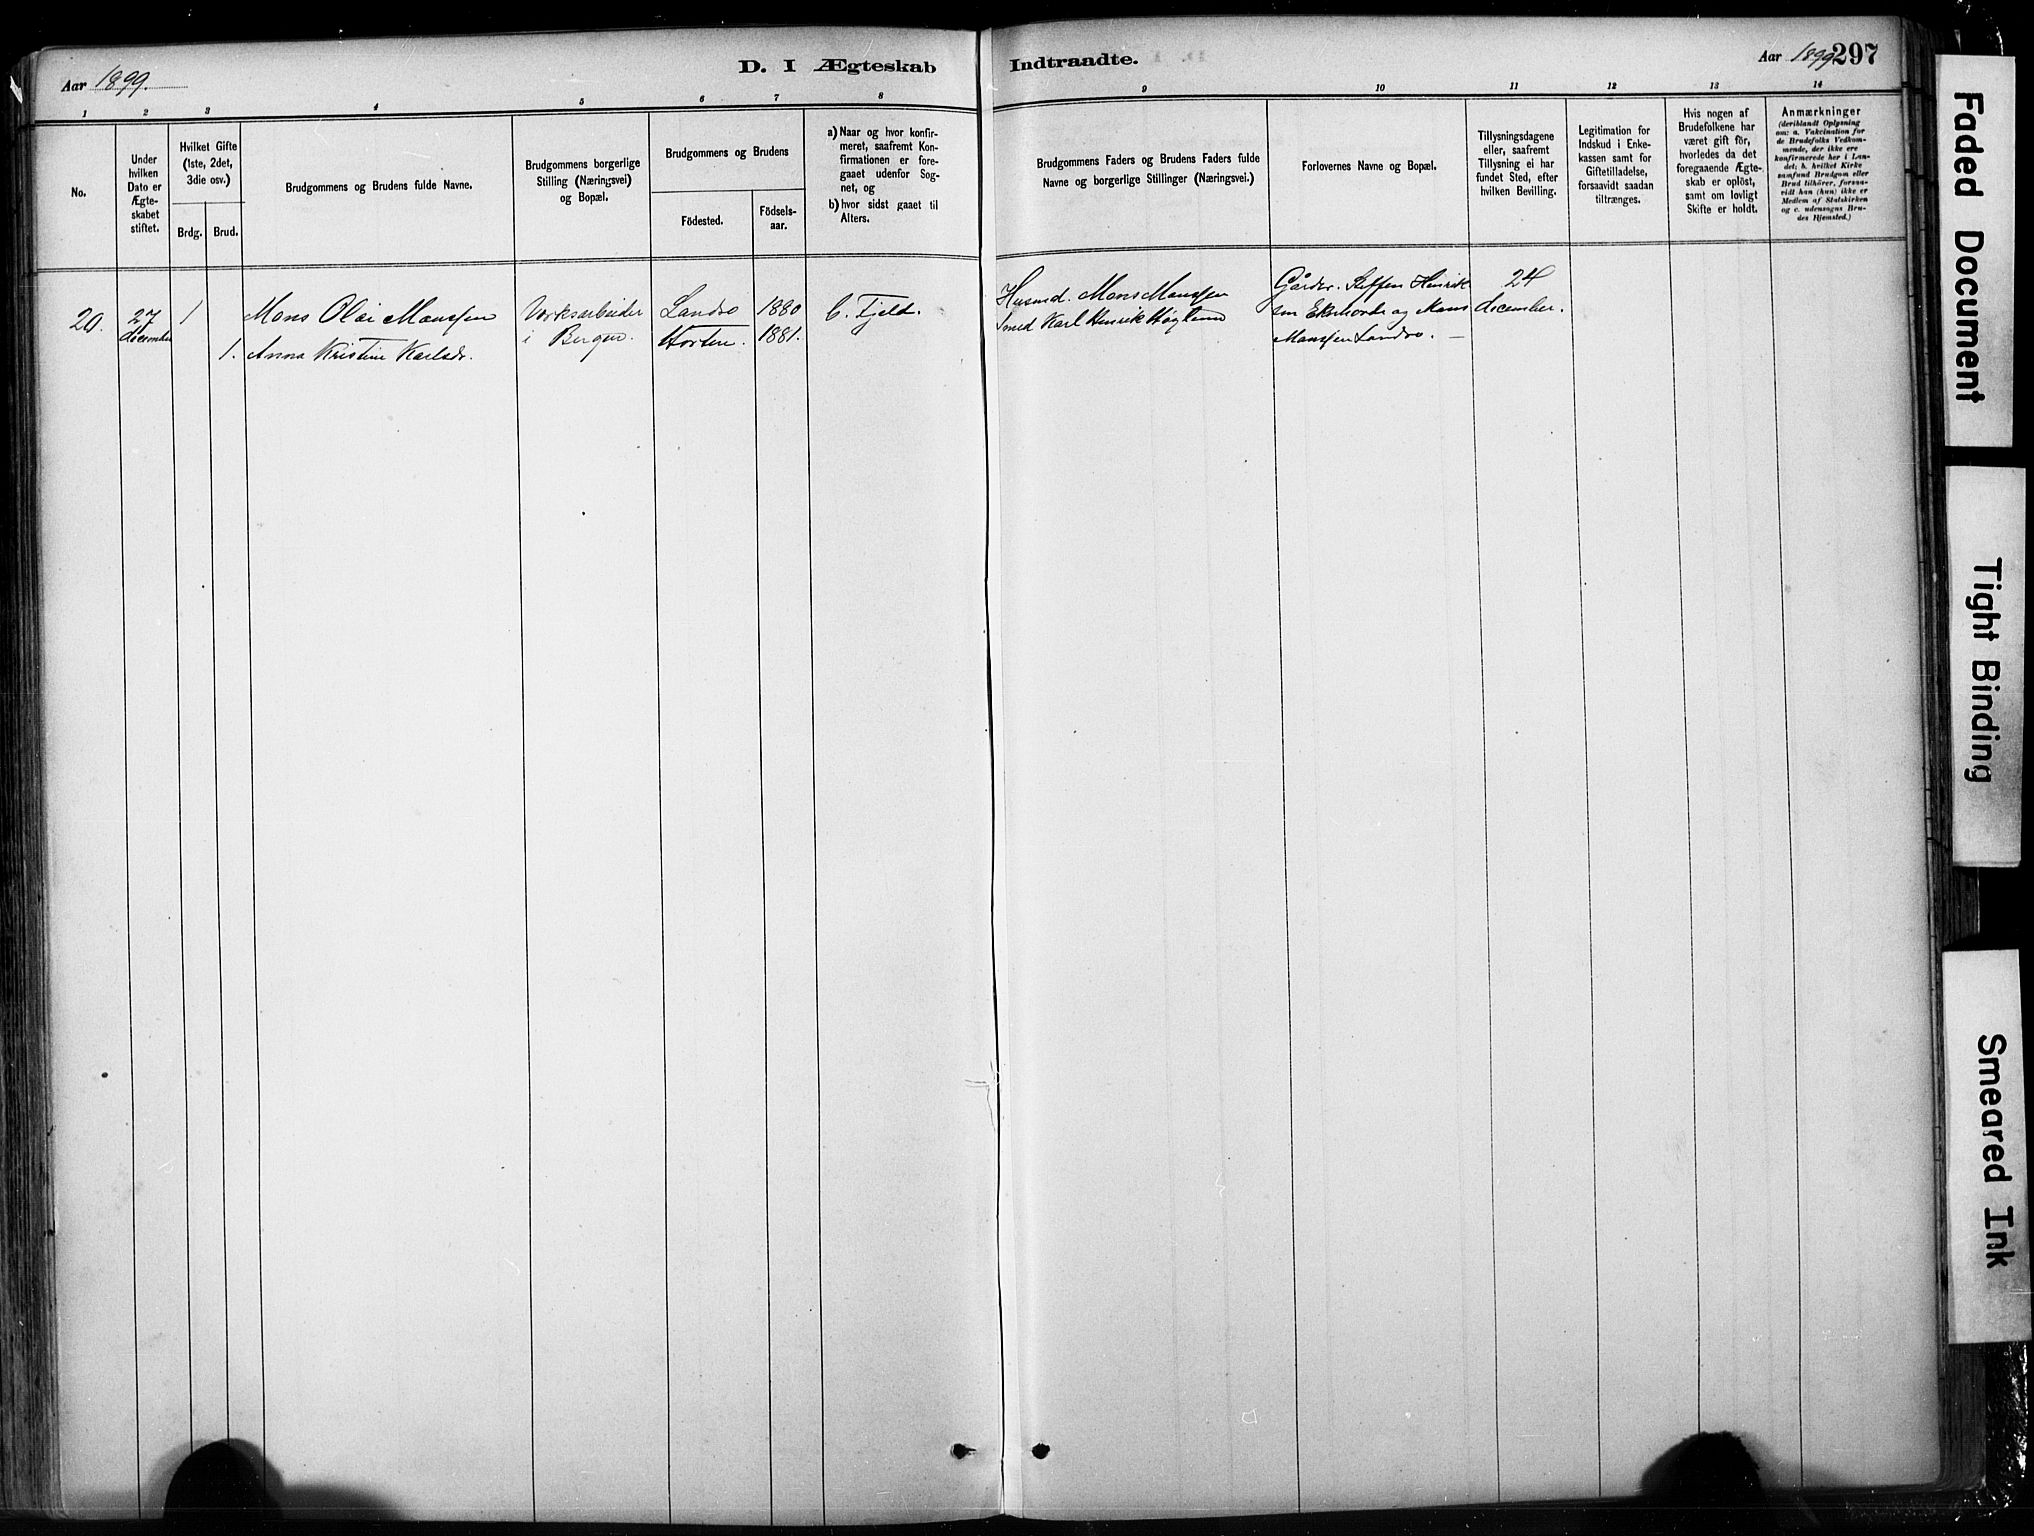 Aar 1899.
D. I Ægteskab
Indtraadte.
Aar 1899
297
1
2
3
4
5
6
7
8
9
10
11
12
13
14
No.
Under
hvilken
Dato er
Ægte-
skabet
stiftet.
Hvilket Gifte
(1ste, 2det,
3die osv.)
Brdg.
Brud.
Brudgommens og Brudens fulde Navne.
Brudgommens borgerlige
Stilling (Næringsvei)
og Bopæl.
Brudgommens og Brudens
Födested.
Födsels-
aar.
a) Naar og hvor konfir-
meret, saafremt Kon-
firmationen er fore-
gaaet udenfor Sog-
net, og
b) hvor sidst gaaet til
Alters.
Brudgommens Faders og Brudens Faders fulde
Navne og borgerlige Stillinger (Næringsvei.)
Forlovernes Navne og Bopæl.
Tillysningsdagene
eller, saafremt
Tillysning ei har
fundet Sted, efter
hvilken Bevilling.
Legitimation for
Indskud i Enke-
kassen samt for
Giftetilladelse,
forsaavidt saadan
tiltrænges.
Hvis nogen af
Brudefolkene har
været gift för,
hvorledes da det
foregaaende Ægte-
skab er oplöst,
samt om lovligt
Skifte er holdt.
Anmærkninger
(deriblandt Oplysning
om: a. Vakcination for
de Brudefolks Vedkom-
mende, der ikke ere
konfirmerede her i Lan-
det; b. hvilket Kirke
samfund Brudgom eller
Brud tilhörer, forsaa-
vidt han (hun) ikke er
Medlem af Statskirken
og c. udensogns Bru-
des Hjemsted.)
20.
27
december
1
1.
Mons Olai Monssen
Anna Kristine Karlsdr.
Værksarbeider
i Bergen.
Landro
Horten.
1880
1881.
b. Fjeld.
Husmd. Mons Monssen
smed Karl Henrik Høglund
Gårdbr. Steffen Henrik
sen Ekerhovde og Mons
Monssen Landro. —
24
december.
Faded Document
Tight Binding
Smeared Ink